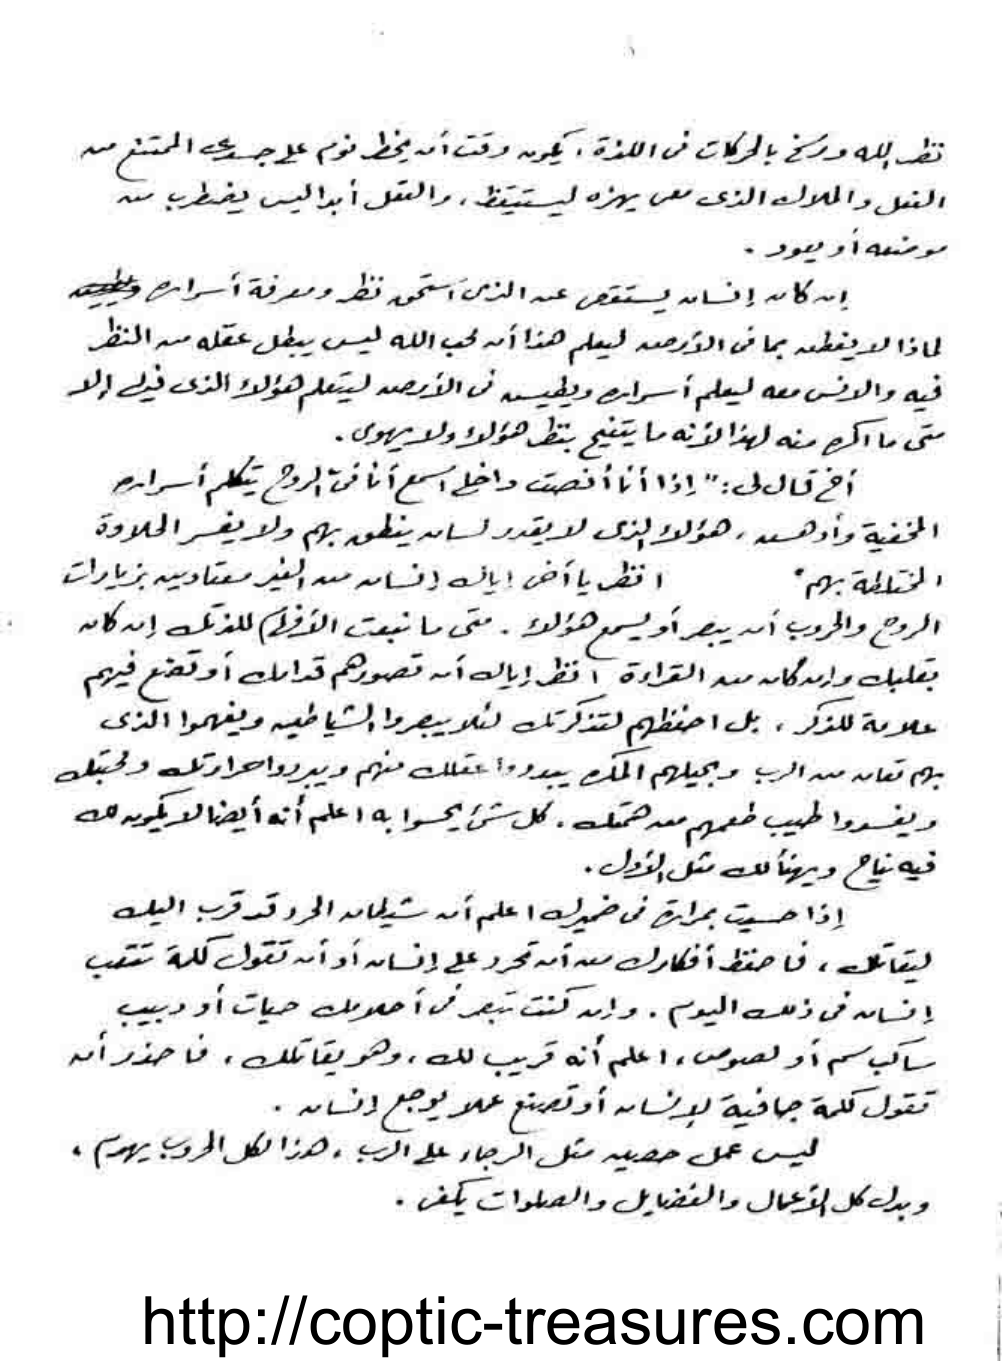 نظر الله ورسخ بالحركات فى اللذة ، يكون وقت أن يخطر نوم على جسدى الممتنع من
الفعل والملاك الذى معى يهزه ليستيقظ ، والعقل أبدا ليس يضطرب من
موضعه أو يعود .
إن كان إنسان يستقصى عن الذى استحق نظر ومعرفة أسراره
لماذا لا يفطن بما فى الأرض ليعلم هذا أن محب الله ليس يبطل عقله من النظر
فيه والانس معه ليعلم أسراره ويطيس فى الأرض ليتعلم هؤلاء الذى فيها إلا
متى ما أكره منه لهذا لأنه ما يتنيح بنظر هؤلاء ولا يهوى .
أخ قال لى : " إذا أنا أنصت داخلى أسمع أنا فىّ الروح يتكلم أسراره
المخفية وأدهس ، هؤلاء الذى لا يقدر لسان ينطق بهم ولا يفسر الحلاوة
المختلطة بهم " انظر يا أخى إياك إنسان من الغير معتادين بزيارات
الروح والحروب أن يبصر أو يسمع هؤلاء . متى ما نبعت الأفهام للذتك إن كان
بقلبك وإن كان من القراءة انظر إياك أن تصورهم قدامك أو تضع فيهم
علامة للذكر ، بل احفظهم لتذكرتك لئلا يبصروا الشياطين ويفهموا الذى
بهم تعان من الرب وبحيلهم المكره يبددوا عقلك منهم ويبردوا حرارتك ومحبتك
ويفسدوا طيب طعمهم من همتك . كل شئ يحسوا به اعلم أنه أيضا لا يكون لك
فيه نياح ويهنأ لك مثل الأول .
إذا حسيت بمرارة فى ضميرك اعلم أن شيطان الحرد قد قرب اليك
ليقاتلك ، فاحفظ أفكارك من أن تحرد على إنسان أو أن تقول كلمة تتعب
إنسان فى ذلك اليوم . وإن كنت تبصر فى أحلامك حيات أو دبيب
ساكب سم أو لصوص ، اعلم أنه قريب لك ، وهو يقاتلك ، فاحذر أن
تقول كلمة جافية لإنسان أو تصنع عملا يوجع إنسان .
ليس عمل حصين مثل الرجاء على الرب ، هذا لكل الحروب يهزم ،
وبدل كل الأعمال والفضايل والصلوات يكفى .
http://coptic-treasures.com